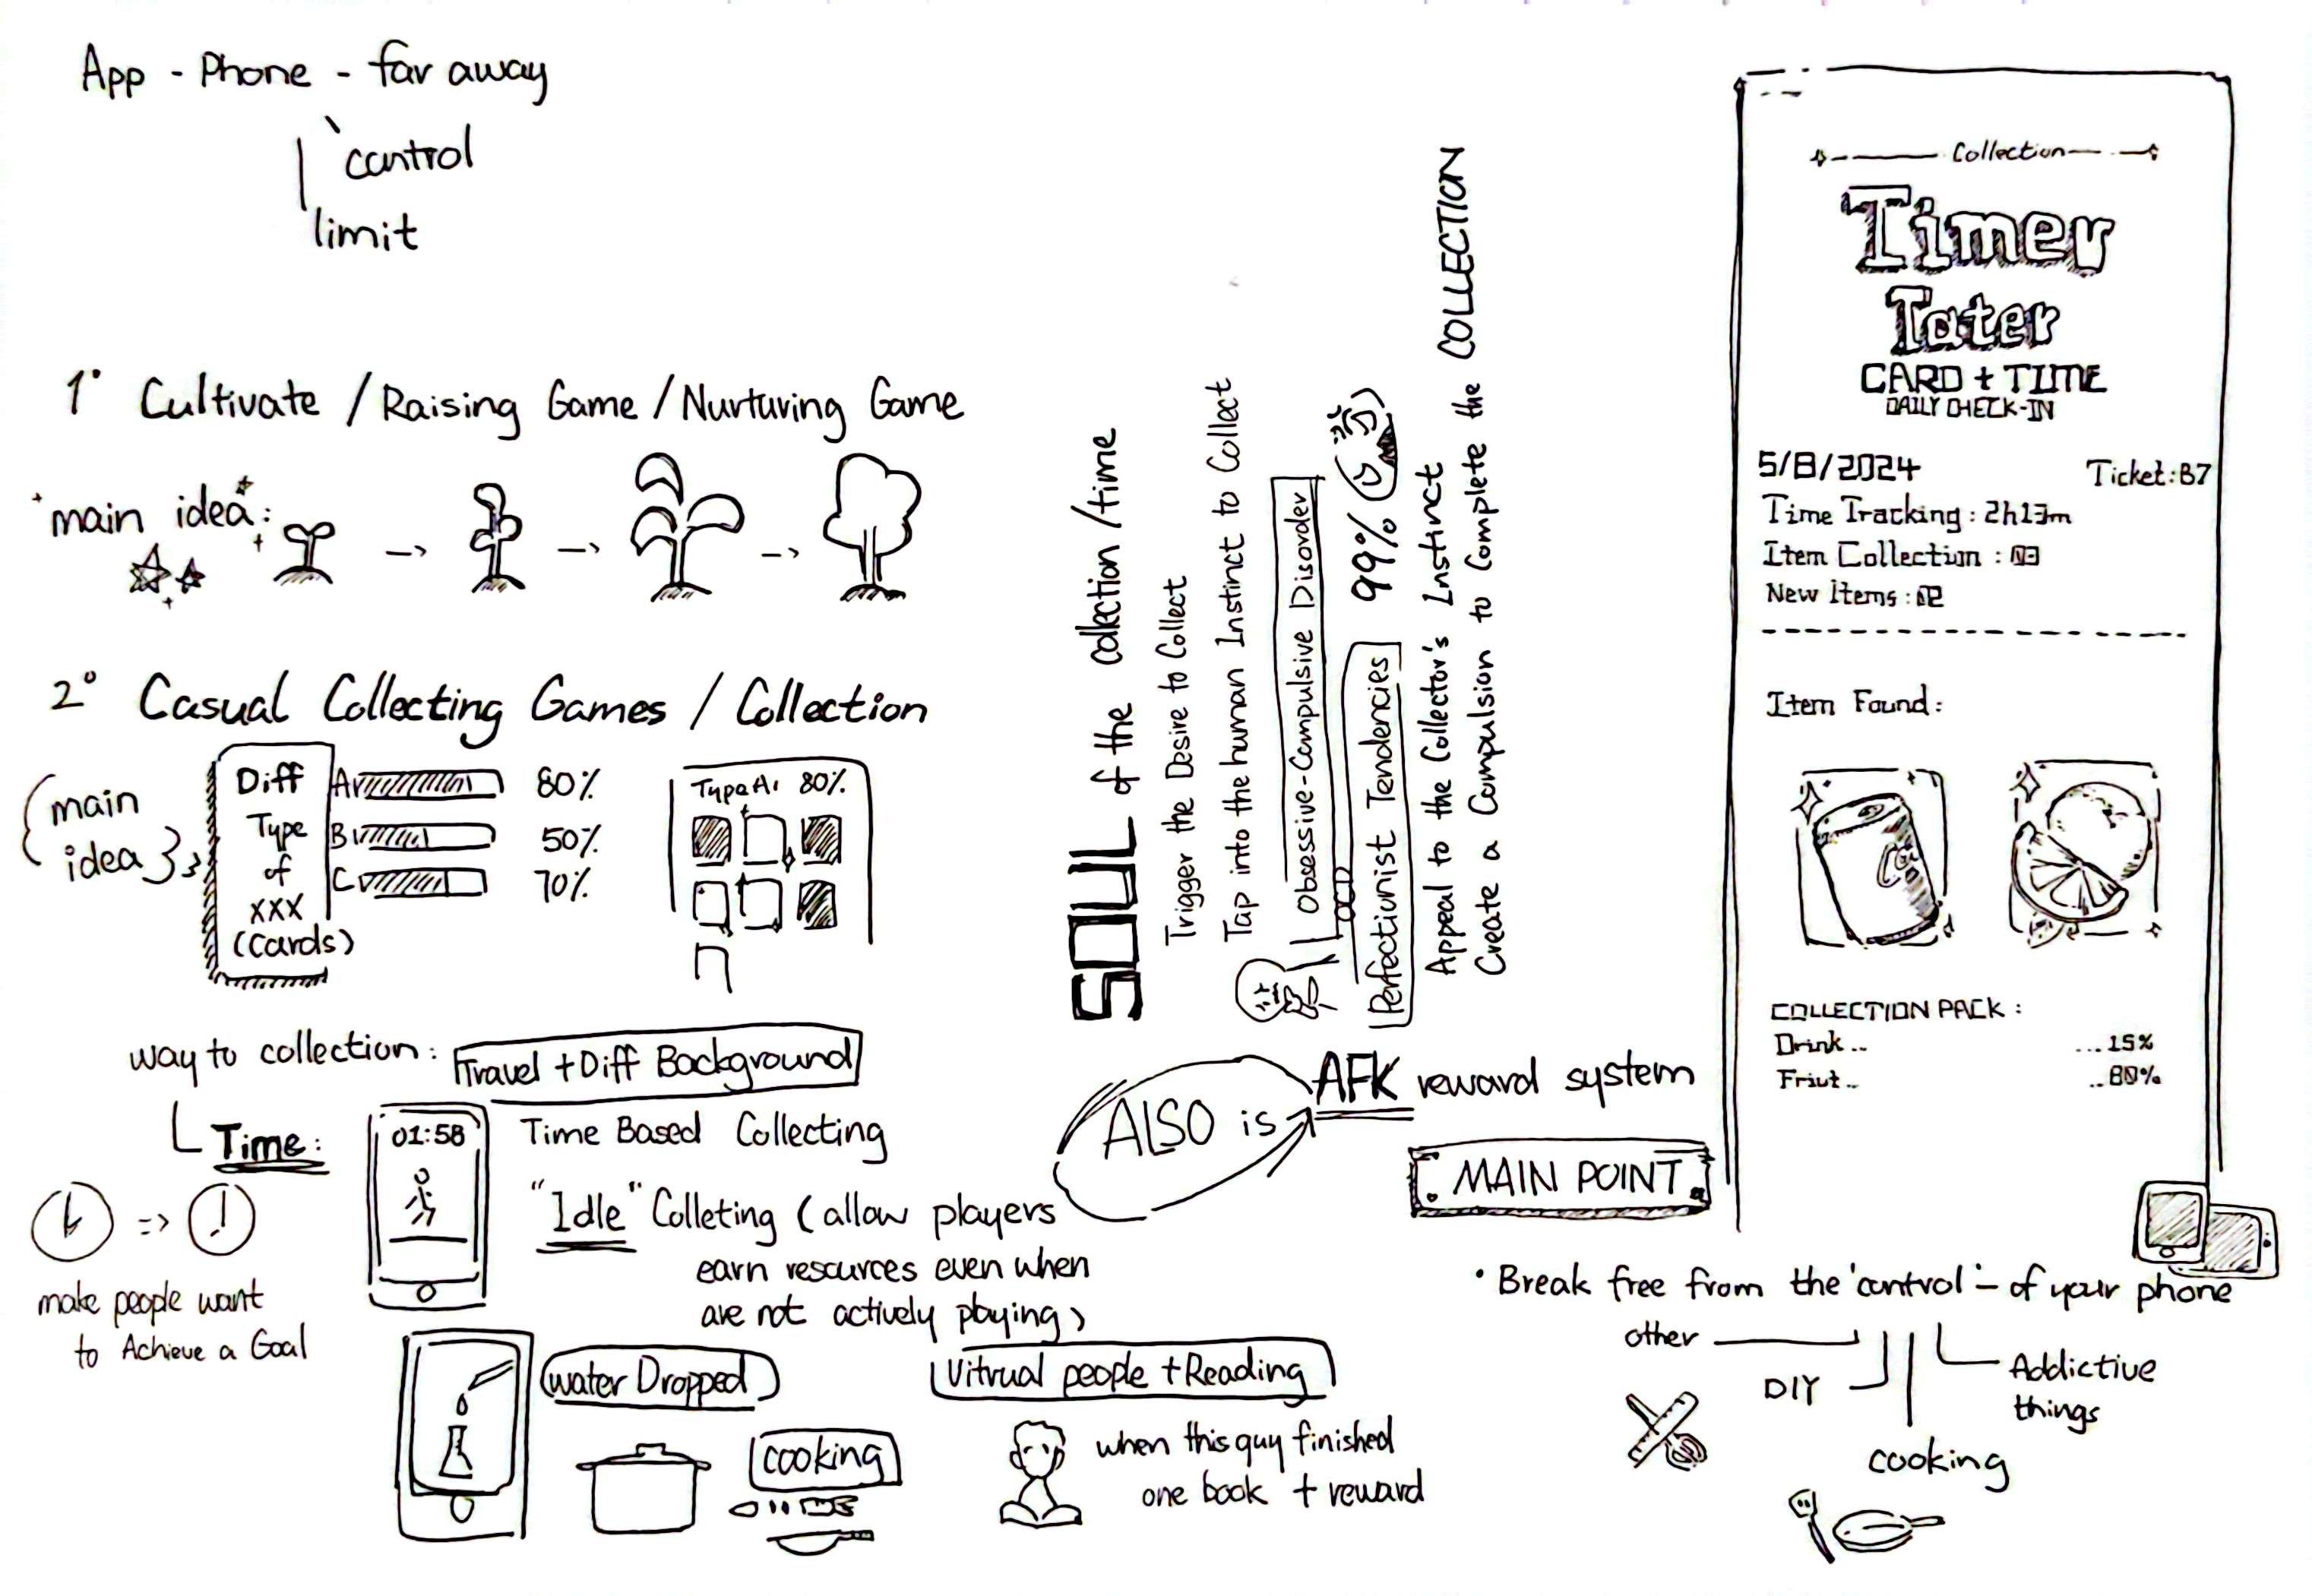 App - Phone - far away
control
limit
1° Cultivate / Raising Game / Nurturing Game
main idea:
2° Casual Collecting Games / Collection
{main
idea}
Diff
Type
of
XXX
(Cards)
A 80%
B 50%
C 70%
Type A: 80%
way to collection: Travel + Diff Background
Time:
01:58
Time Based Collecting
"Idle" Colleting (allow players
earn resources even when
are not actively playing)
=>
make people want
to Achieve a Goal
water Dropped
cooking
Vitrual people + Reading
when this guy finished
one book + reward
SOUL of the collection/time
Trigger the Desire to Collect
Tap into the human Instinct to Collect
Obsessive-Compulsive Disorder
OCD
Perfectionist Tendencies 99%
Appeal to the Collector's Instinct
Create a Compulsion to Complete the COLLECTION
ALSO is AFK reward system
MAIN POINT
Collection
Timer
Tater
CARD + TIME
DAILY CHECK-IN
5/8/2024 Ticket: B7
Time Tracking: 2h13m
Item Collection: 03
New Items: 02
Item Found:
COLLECTION PACK:
Drink.. ...15%
Friut.. ..80%
• Break free from the 'control' - of your phone
other
DIY
Addictive
things
cooking